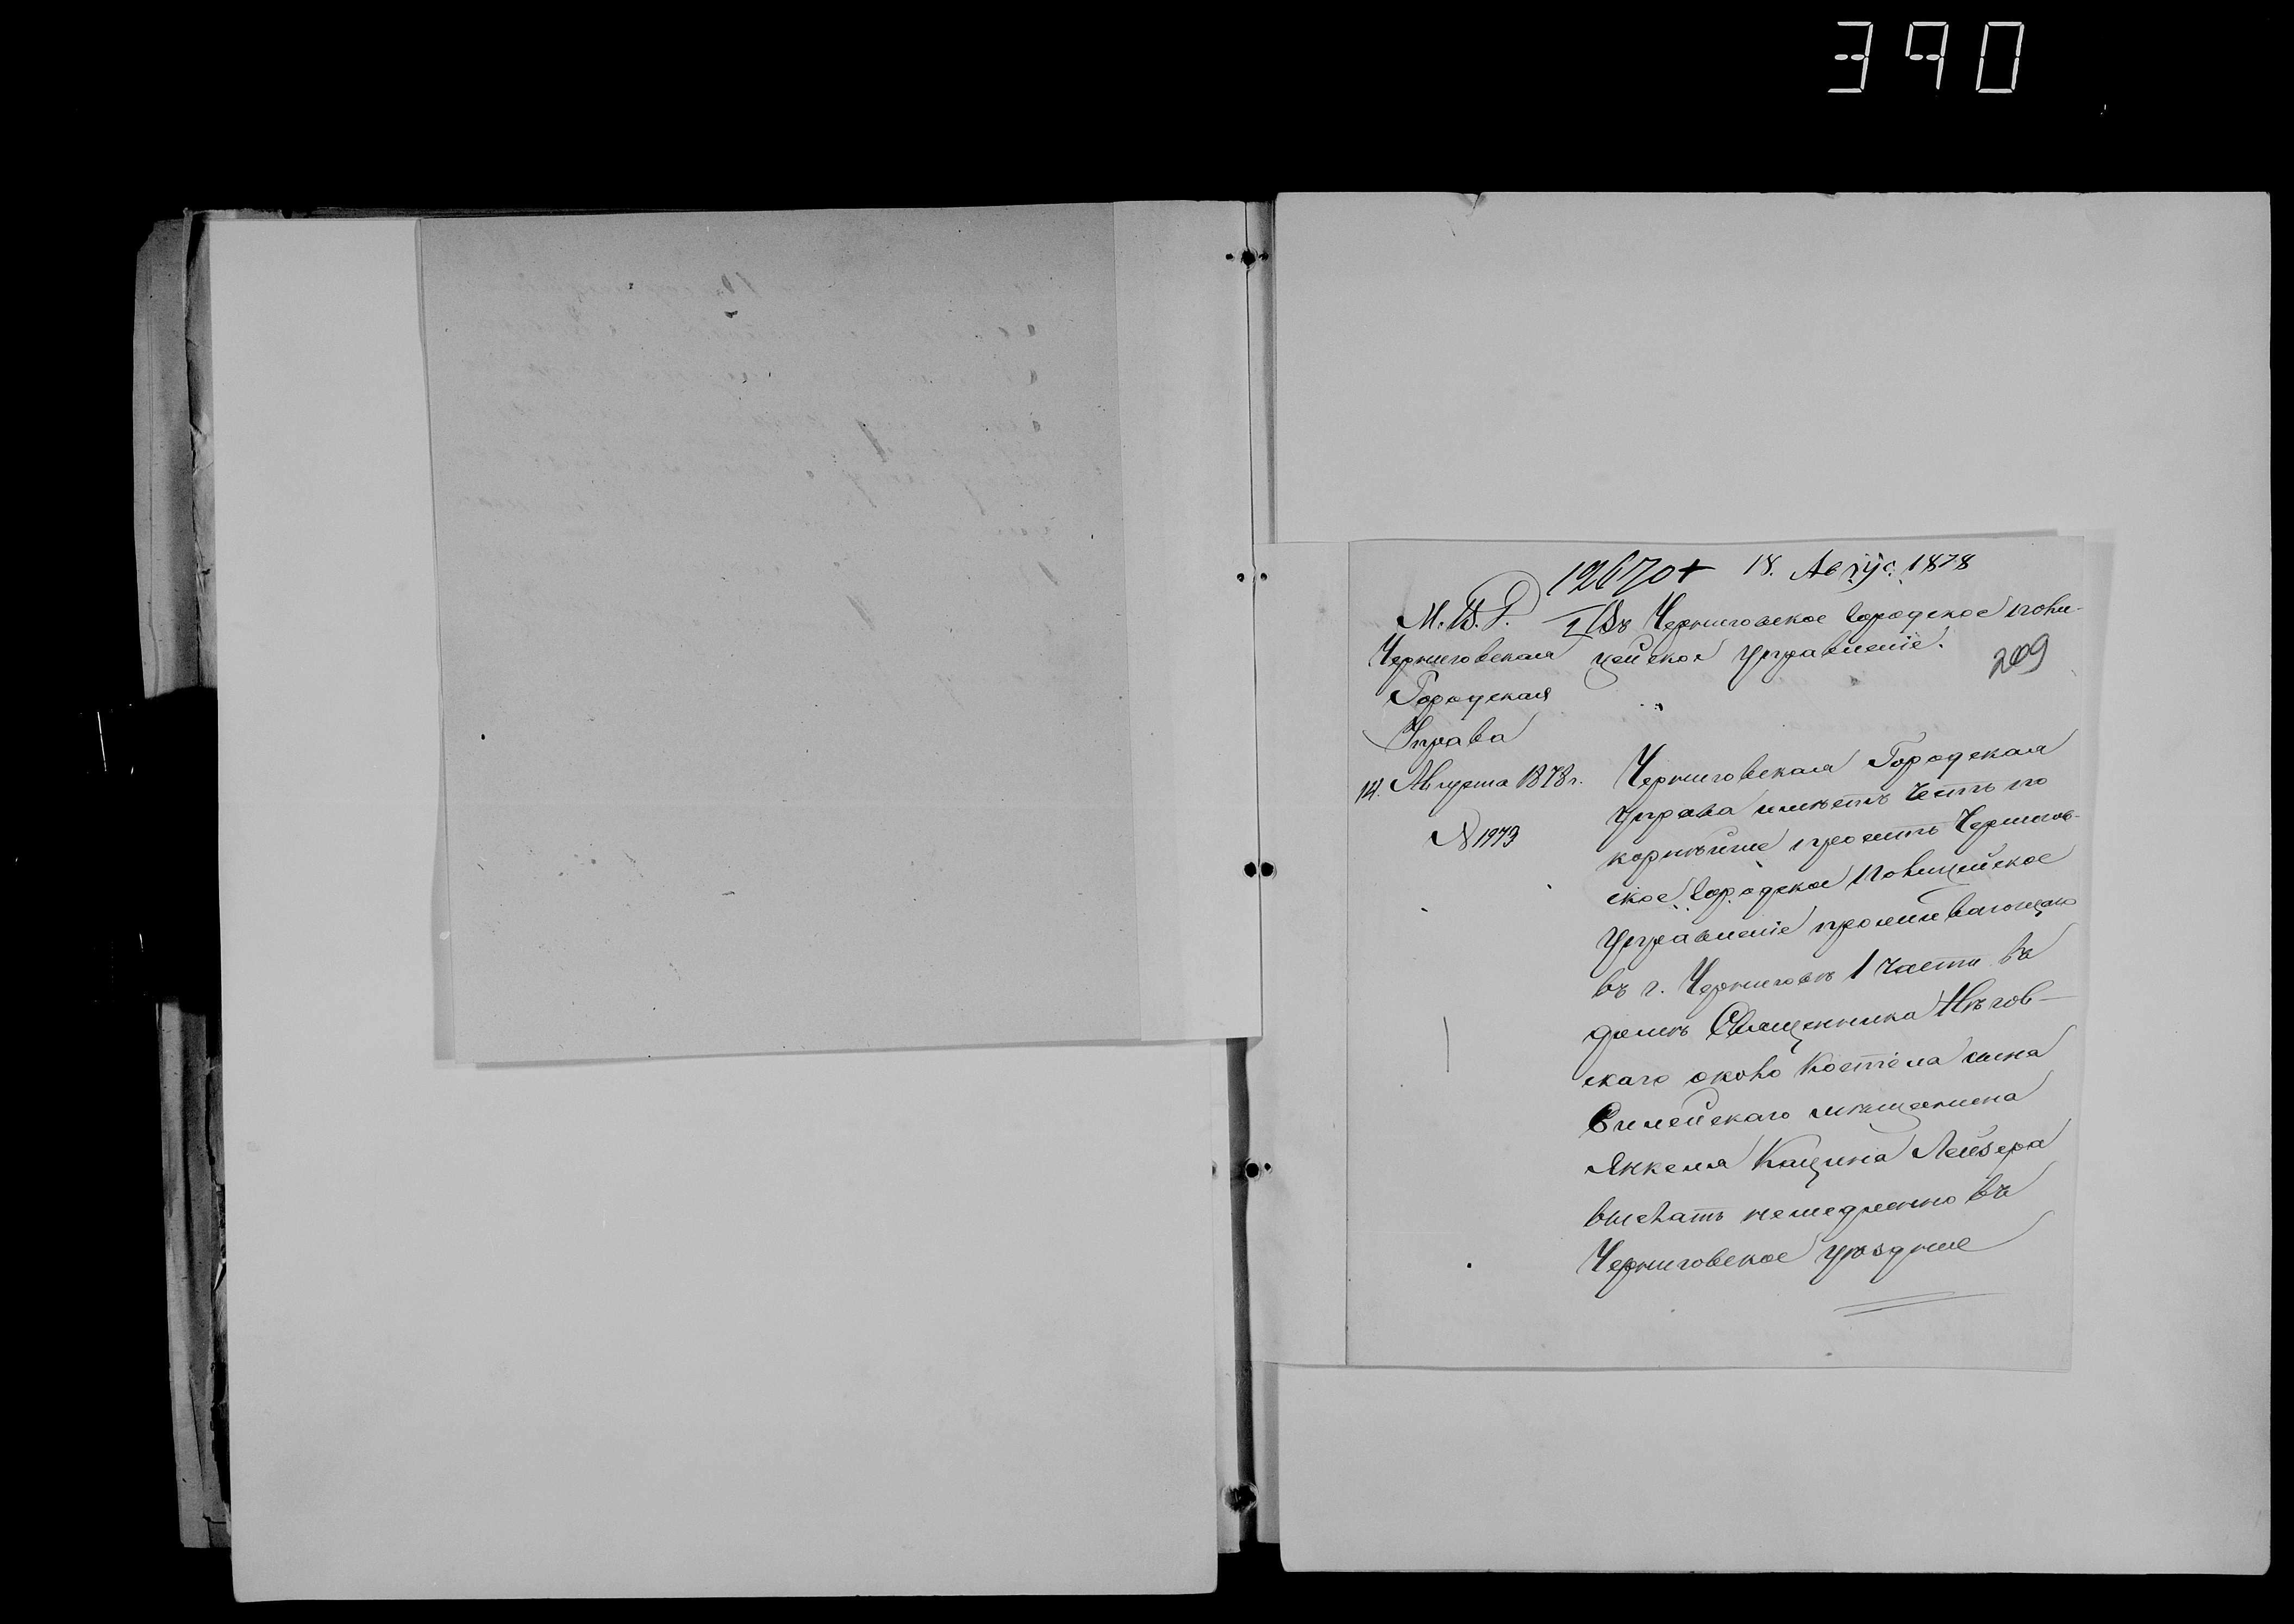 390
12670+ 18. Авгус. 1878
М.В.Д.
Черниговская
Городская
Управа
14. Августа 1878 г.
N 1973
I Въ Черниговское Городское поли-
цейское Управленіе.
209
Черниговская Городская
Управа имѣетъ честь по
корнѣйше просить Чернигов-
ское Городское Полицейское
Управленіе проживающаго
въ г. Черниговѣ 1 части въ
домѣ Священника Нѣгов-
скаго около Костела сына
мѣщанина
Янкеля Кацина Лейзера
выслать немедленно въ
Черниговское уѣздное